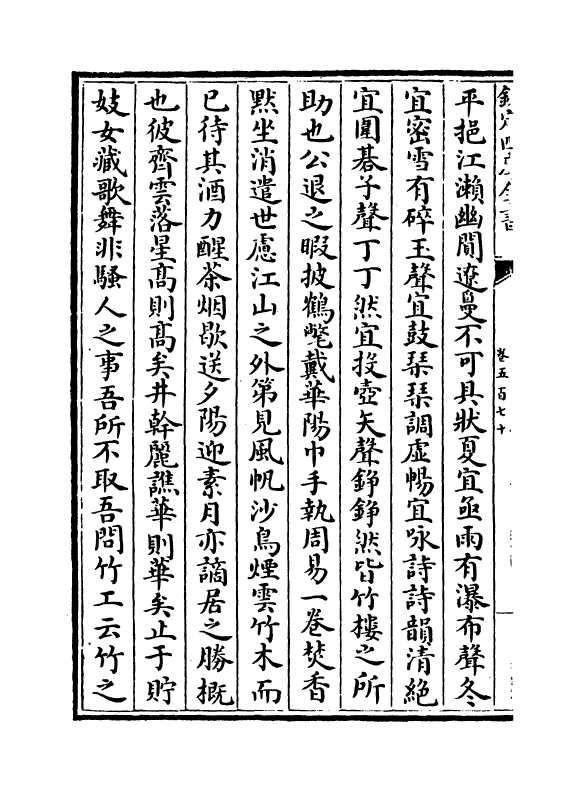 欽定四庫全書
卷五百七十
平挹江瀨幽閴遼敻不可具狀夏宜亟雨有瀑布聲冬
宜密雪有碎玉聲宜鼓琴琴調虛暢宜咏詩詩韻清絶
宜圍碁子聲丁丁然宜投壺矢聲錚錚然皆竹樓之所
助也公退之暇披鶴氅戴華陽巾手執周易一卷焚香
黙坐消遣世慮江山之外第見風帆沙鳥煙雲竹木而
已待其酒力醒茶烟歇送夕陽迎素月亦謫居之勝概
也彼齊雲落星髙則髙矣井幹麗譙華則華矣止于貯
妓女藏歌舞非騷人之事吾所不取吾問竹工云竹之